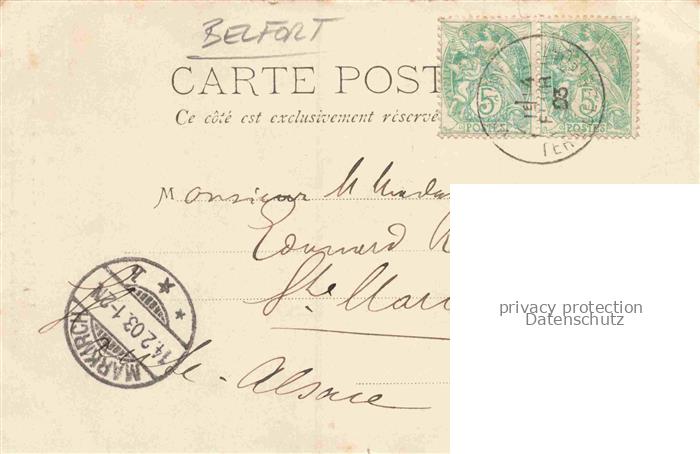 BELFORT
CARTE POST
Ce côté est exclusivement réservé
5c 5c
POSTES POSTES
FEVR
03
TERR
Monsieur & Mada
Edouard
Ste Mari
Alsace
MARKIRCH
14.2.03.1-2N
privacy protection
Datenschutz